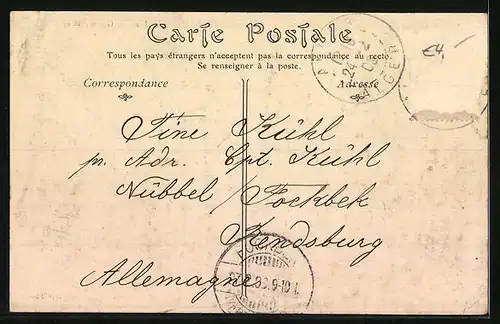 Carte Postale
Tous les pays étrangers n'acceptent pas la correspondance au recto.
Se renseigner à la poste.
Correspondance
Adresse
€4,-
Tine Kühl
pr. Adr. Cpt. Kühl
Nübbel / Fockbek
Rendsburg
Allemagne
ALGER